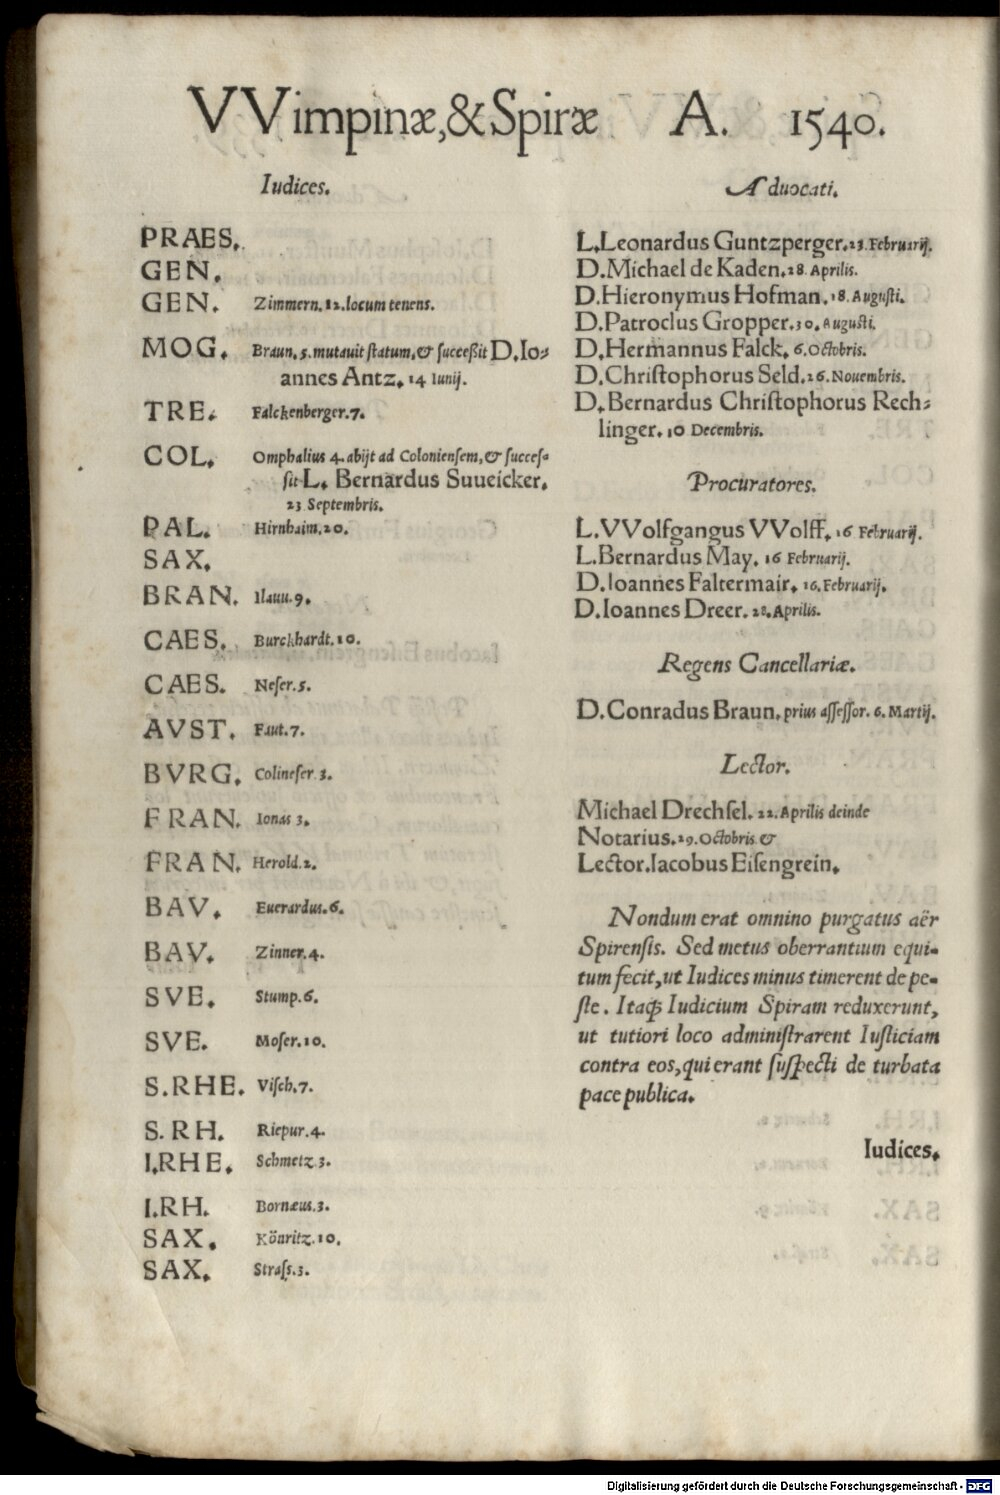 VVimpinæ, & Spiræ A. 1540.
Iudices.
PRAES.
GEN.
GEN. Zimmern. 12. locum tenens.
MOG. Braun. 5. mutauit ſtatum, & ſucceßit D. Io⸗
annes Antz. 14 Iunij.
TRE. Falckenberger. 7.
COL. Omphalius 4. abijt ad Colonienſem, & ſucceſ⸗
ſit L. Bernardus Suueicker.
23 Septembris.
PAL. Hirnhaim. 20.
SAX.
BRAN. Ilauu. 9.
CAES. Burckhardt. 10.
CAES. Neſer. 5.
AVST. Faut. 7.
BVRG. Colineſer. 3.
FRAN. Ionas 3.
FRAN. Herold. 2.
BAV. Euerardus. 6.
BAV. Zinner. 4.
SVE. Stump. 6.
SVE. Moſer. 10.
S. RHE. Viſch. 7.
S. RH. Riepur. 4.
I. RHE. Schmetz. 3.
I. RH. Bornæus. 3.
SAX. Könritz. 10.
SAX. Straſs. 3.
Aduocati.
L. Leonardus Guntzperger. 23. Februarij.
D. Michael de Kaden. 28. Aprilis.
D. Hieronymus Hofman. 18. Auguſti.
D. Patroclus Gropper. 30. Auguſti.
D. Hermannus Falck. 6. Octobris.
D. Chriſtophorus Seld. 26. Nouembris.
D. Bernardus Chriſtophorus Rech⸗
linger. 10 Decembris.
Procuratores.
L. VVolfgangus VVolff. 16 Februarij.
L. Bernardus May. 16 Februarij.
D. Ioannes Faltermair. 16. Februarij.
D. Ioannes Dreer. 28. Aprilis.
Regens Cancellariæ.
D. Conradus Braun. prius aſſeſſor. 6. Martij.
Lector.
Michael Drechſel. 22. Aprilis deinde
Notarius. 29. Octobris &
Lector. Iacobus Eiſengrein.
Nondum erat omnino purgatus aër
Spirenſis. Sed metus oberrantium equi⸗
tum fecit, ut Iudices minus timerent de pe⸗
ſte. Itaq́; Iudicium Spiram reduxerunt,
ut tutiori loco adminiſtrarent Iuſticiam
contra eos, qui erant ſuſpecti de turbata
pace publica.
Iudices.
Digitalisierung gefördert durch die Deutsche Forschungsgemeinschaft - DFG